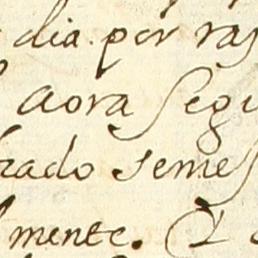 dia. por ras
aora segu
rado semes
mente. Q